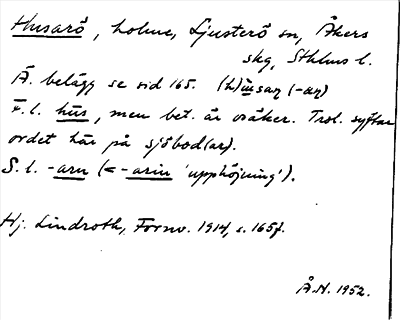 Husarö, holme, Ljusterö sn, Åkers
skg, Sthlms l.
Ä. belägg se sid 165. (h)ūsaṟ (-aṟ)
F.l. hūs, men bet. är osäker. Trol. syftar
ordet här på sjöbod(ar).
S.l. -arn (<-arin 'upphöjning').
Hj. Lindroth, Fornv. 1914, s. 165f.
Å.N. 1952.